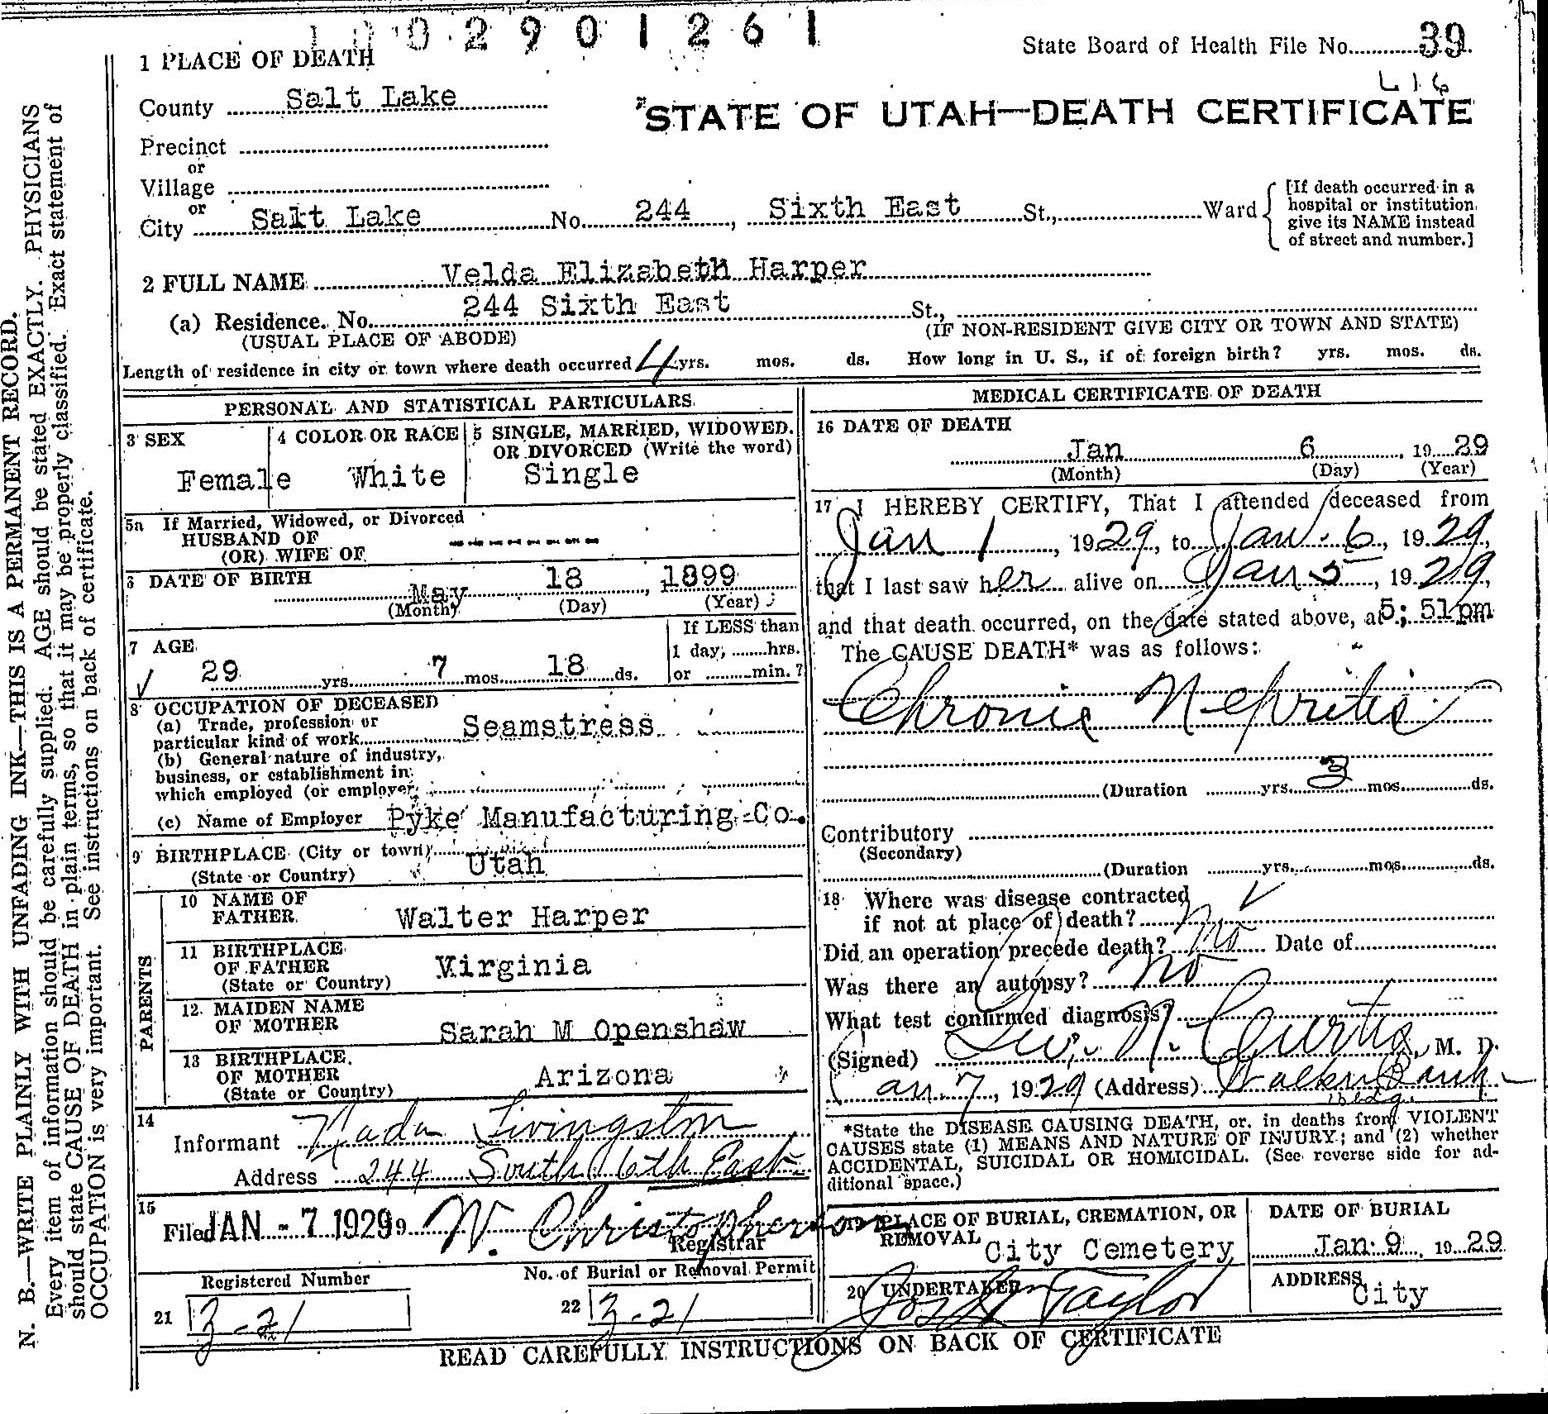 1 0 0 2 9 0 1 2 6 1
State Board of Health File No. 39
L16
1 PLACE OF DEATH
County Salt Lake
STATE OF UTAH—DEATH CERTIFICATE
Precinct
or
Village
or
City Salt Lake No. 244, Sixth East St., Ward
[If death occurred in a
hospital or institution,
give its NAME instead
of street and number.]
2 FULL NAME Velda Elizabeth Harper
(a) Residence. No. 244 Sixth East St.,
(USUAL PLACE OF ABODE) (IF NON-RESIDENT GIVE CITY OR TOWN AND STATE)
Length of residence in city or town where death occurred 4 yrs. mos. ds. How long in U. S., if of foreign birth? yrs. mos. ds.
PERSONAL AND STATISTICAL PARTICULARS
3 SEX 4 COLOR OR RACE 5 SINGLE, MARRIED, WIDOWED.
OR DIVORCED (Write the word)
Female White Single
5a If Married, Widowed, or Divorced
HUSBAND OF
(OR) WIFE OF
6 DATE OF BIRTH
May 18, 1899
(Month) (Day) (Year)
7 AGE
29 yrs. 7 mos. 18 ds.
If LESS than
1 day, hrs.
or min.?
8 OCCUPATION OF DECEASED
(a) Trade, profession or
particular kind of work Seamstress
(b) General nature of industry,
business, or establishment in
which employed (or employer
(c) Name of Employer Pyke Manufacturing Co.
9 BIRTHPLACE (City or town)
(State or Country) Utah
PARENTS
10 NAME OF
FATHER Walter Harper
11 BIRTHPLACE
OF FATHER
(State or Country) Virginia
12 MAIDEN NAME
OF MOTHER Sarah M Openshaw
13 BIRTHPLACE
OF MOTHER
(State or Country) Arizona
14
Informant Nada Livingston
Address 244 South 6th East
15
Filed JAN -7 1929 W. Christopherson
Registrar
Registered Number No. of Burial or Removal Permit
21 3-21 22 3-21
MEDICAL CERTIFICATE OF DEATH
16 DATE OF DEATH
Jan 6, 1929
(Month) (Day) (Year)
17 I HEREBY CERTIFY, That I attended deceased from
Jan 1, 1929, to Jan. 6, 1929,
that I last saw her alive on Jan 5, 1929,
and that death occurred, on the date stated above, at 5:51pm
The CAUSE DEATH* was as follows:
Chronic Nepritis
(Duration yrs. 3 mos. ds.
Contributory
(Secondary)
(Duration yrs. mos. ds.
18 Where was disease contracted
if not at place of death? no
Did an operation precede death? no Date of
Was there an autopsy? no
What test confirmed diagnosis?
(Signed) Geo. N. Curtis, M. D.
Jan 7, 1929 (Address) Walker Bank
Bldg.
*State the DISEASE CAUSING DEATH, or, in deaths from VIOLENT
CAUSES state (1) MEANS AND NATURE OF INJURY; and (2) whether
ACCIDENTAL, SUICIDAL OR HOMICIDAL. (See reverse side for ad-
ditional space.)
19 PLACE OF BURIAL, CREMATION, OR
REMOVAL City Cemetery
DATE OF BURIAL
Jan 9, 1929
20 UNDERTAKER Taylor
ADDRESS City
READ CAREFULLY INSTRUCTIONS ON BACK OF CERTIFICATE
N. B.—WRITE PLAINLY WITH UNFADING INK—THIS IS A PERMANENT RECORD.
Every item of information should be carefully supplied. AGE should be stated EXACTLY. PHYSICIANS
should state CAUSE OF DEATH in plain terms, so that it may be properly classified. Exact statement of
OCCUPATION is very important. See instructions on back of certificate.